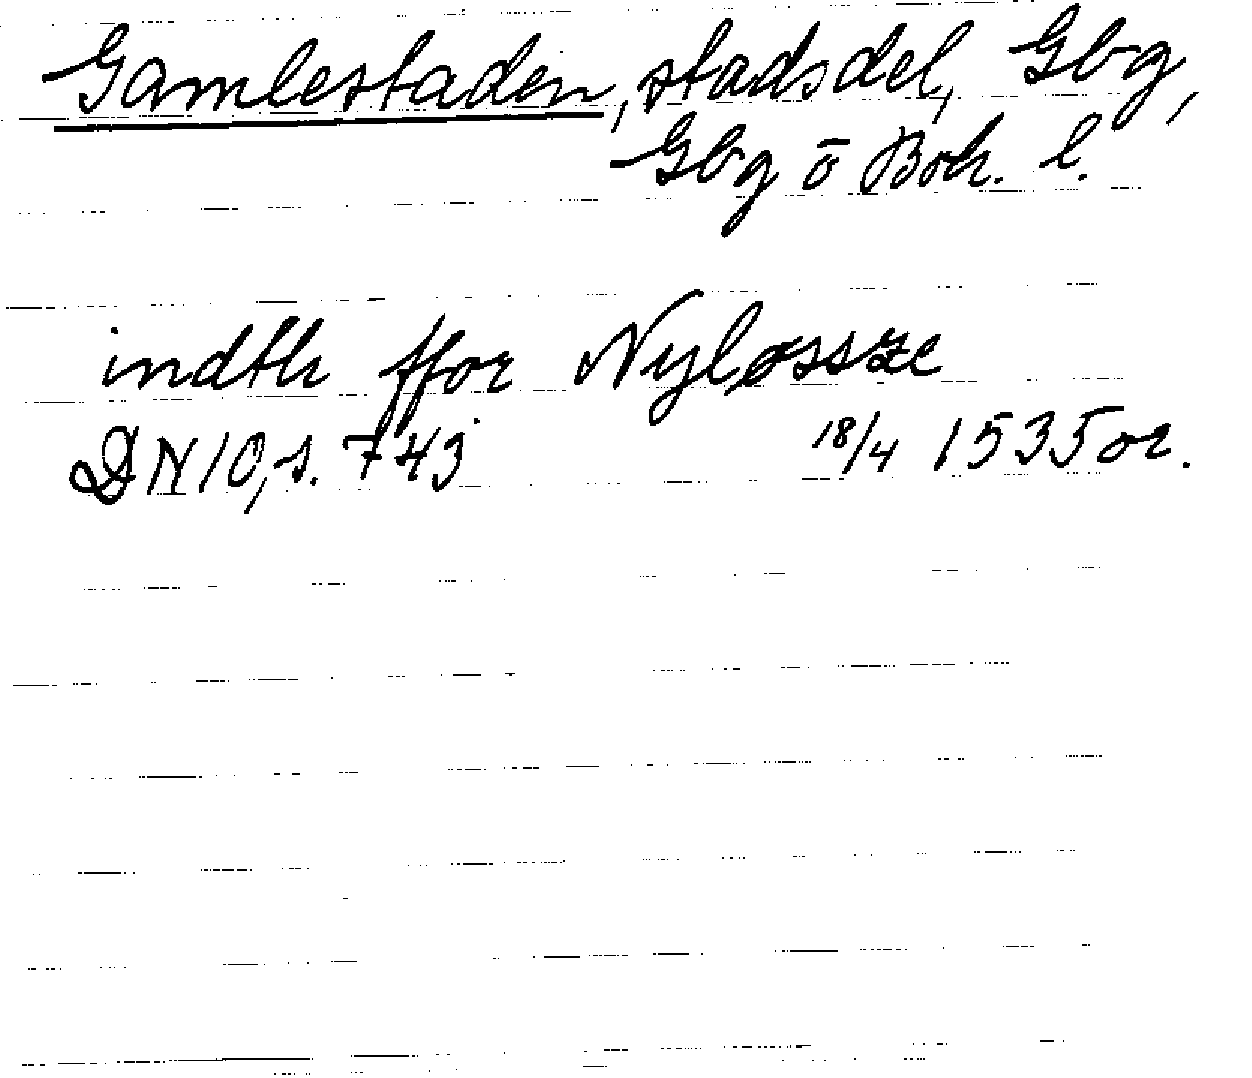 Gamlestaden, stadsdel, Gbg,
Gbg o Boh. l.
indth ffor Nyløssze
DN 10, s. 743 18/4 1535 or.